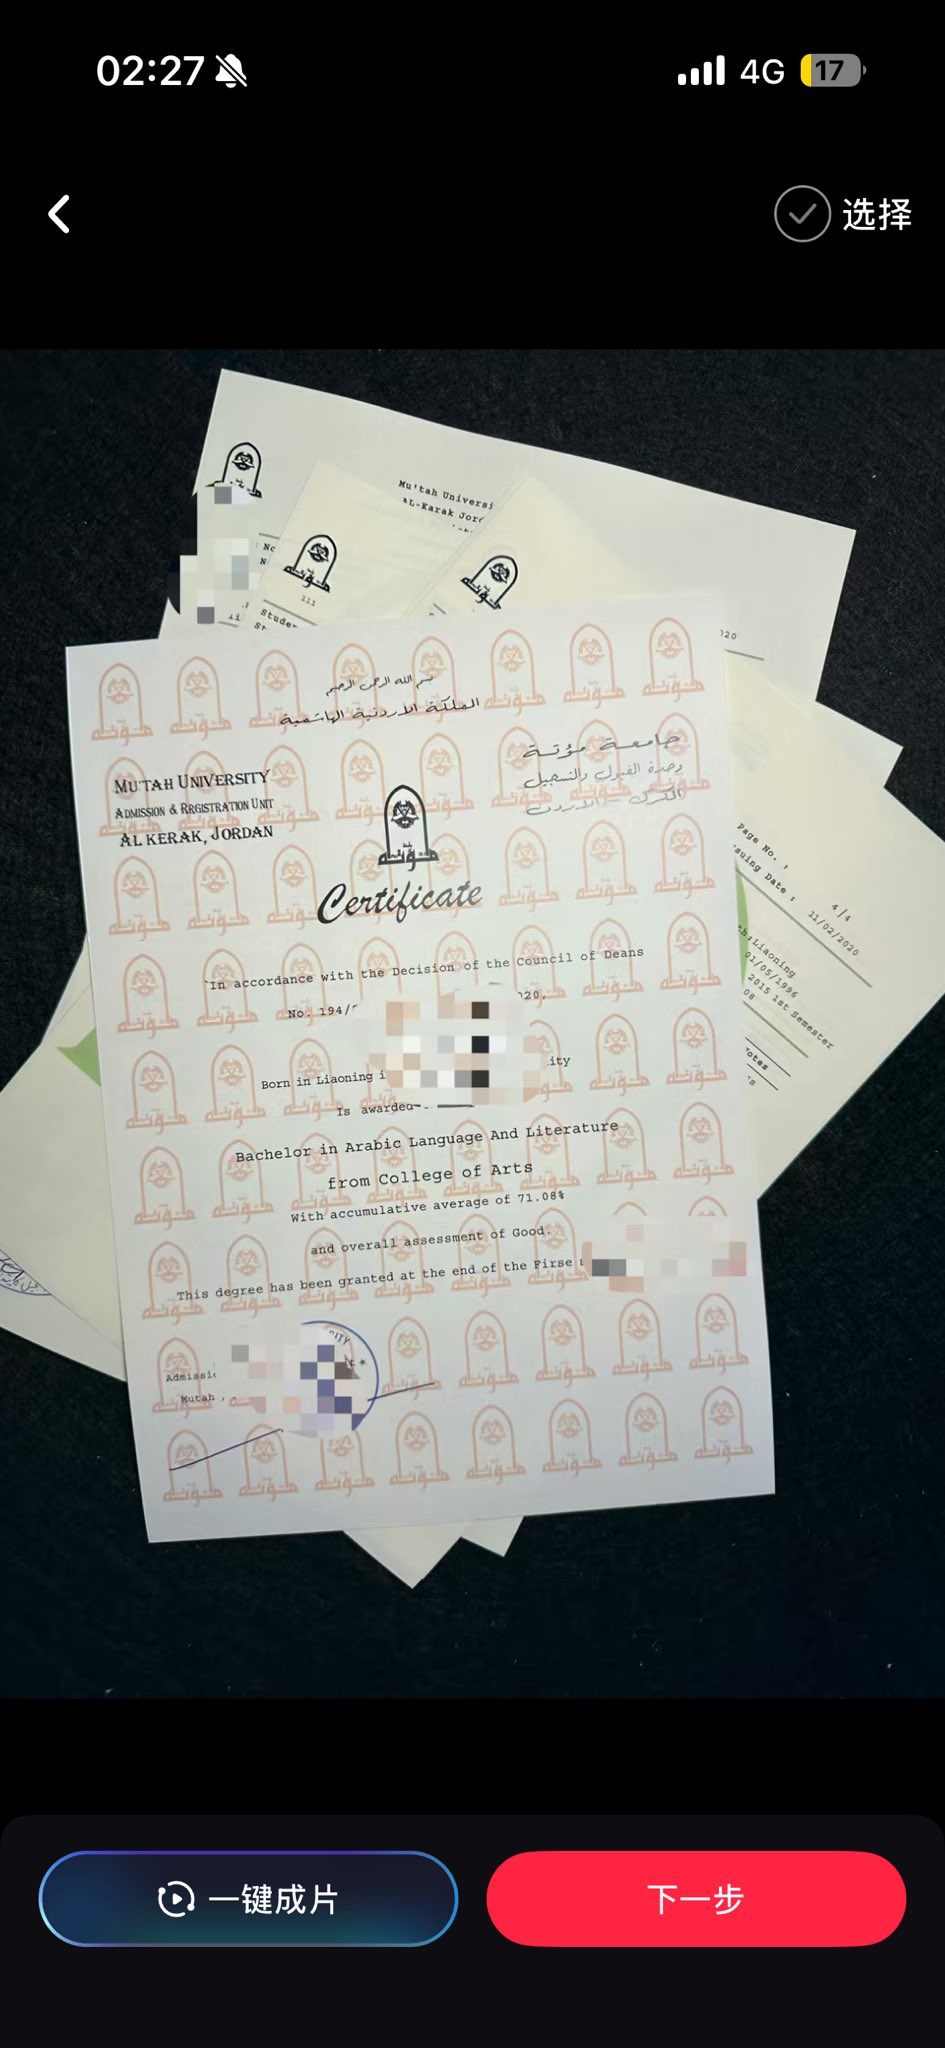 02:27
4G
17
选择
Mu'tah Universi
AL-Karak Jor
111
Stude
St
020
بسم الله الرحمن الرحيم
المملكة الأردنية الهاشمية
MU'TAH UNIVERSITY
ADMISSION & RRGISTRATION UNIT
AL KERAK, JORDAN
جامعة مؤتة
وحدة القبول والتسجيل
الكرك - الأردن
مؤته
Certificate
In accordance with the Decision of the Council of Deans
No. 194/
020,
Born in Liaoning i
ity
Is awarded
Bachelor in Arabic Language And Literature
from College of Arts
With accumulative average of 71.08%
and overall assessment of Good.
This degree has been granted at the end of the Firse s
SITY
Admissi
Mutah
Page No. :
4/4
suing Date :
11/02/2020
th:Liaoning
01/05/1996
2015 1st Semester
08
otes
一键成片
下一步